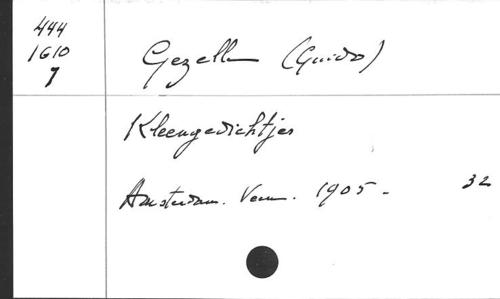 444
1610
7
Gezelle (Guido)
Kleengedichtjes
Amsterdam. Veen. 1905 - 32